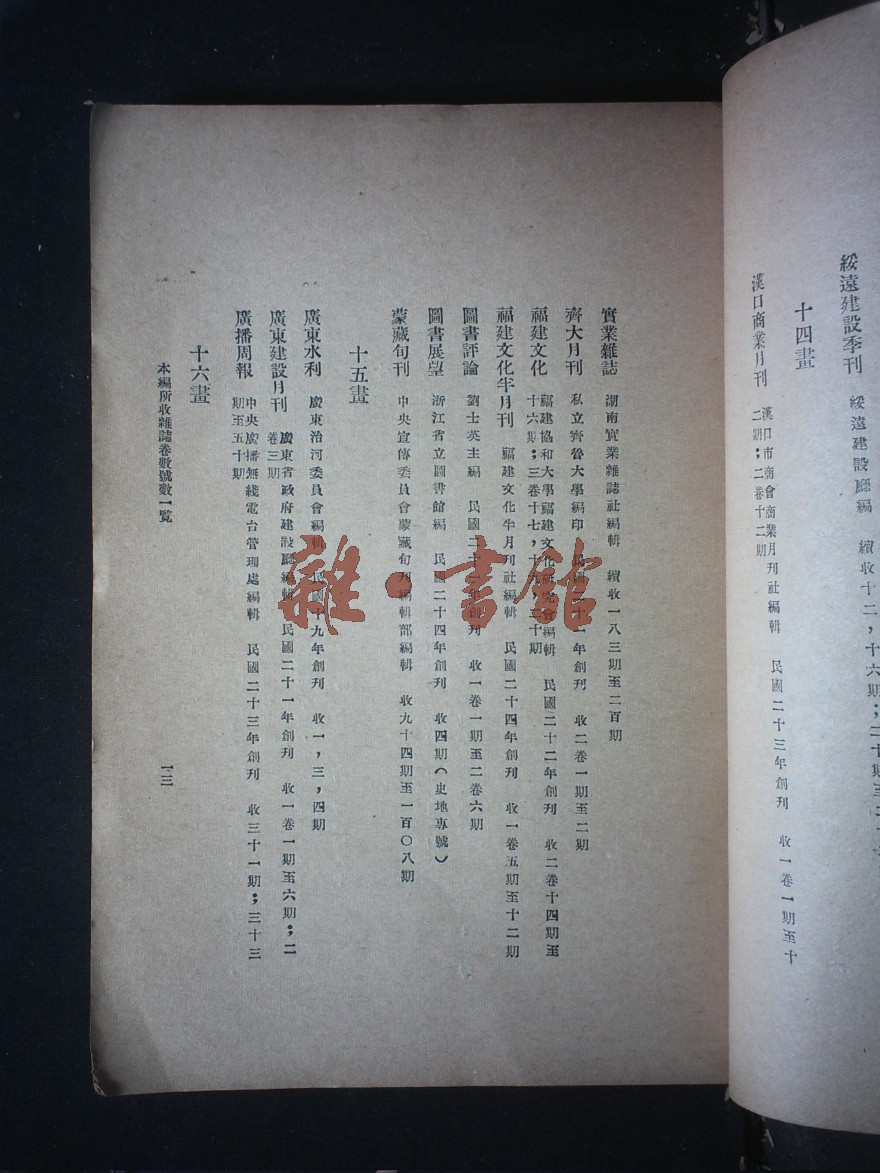 綏遠建設季刊　綏遠建設廳編　續收十二，十六期；二十期至二
十四畫
漢口商業月刊　漢口市商會商業月刊社編輯　民國二十三年創刊　收一卷一期至十
二期；二卷十二期
實業雜誌　湖南實業雜誌社編輯　續收一八三期至二百期
齊大月刊　私立齊魯大學編印　民國二十一年創刊　收二卷一期至二期
福建文化　福建協和大學福建文化研究會編輯　民國二十二年創刊　收二卷十四期至
十六期；三卷十七，十九，二十期
福建文化半月刊　福建文化半月刊社編輯　民國二十四年創刊　收一卷五期至十二期
圖書評論　劉士英主編　民國二十年創刊　收一卷一期至二卷六期
圖書展望　浙江省立圖書館編　民國二十四年創刊　收四期（史地專號）
蒙藏旬刊　中央宣傳委員會蒙藏旬刊編輯部編輯　收九十四期至一百〇八期
十五畫
廣東水利　廣東治河委員會編輯　民國十九年創刊　收一，三，四期
廣東建設月刊　廣東省政府建設廳編輯　民國二十一年創刊　收一卷一期至六期；二
卷三期
廣播周報　中央廣播無綫電台管理處編輯　民國二十三年創刊　收三十一期；三十三
期至五十期
十六畫
本編所收雜誌卷數號數一覽
一三
雜·書館